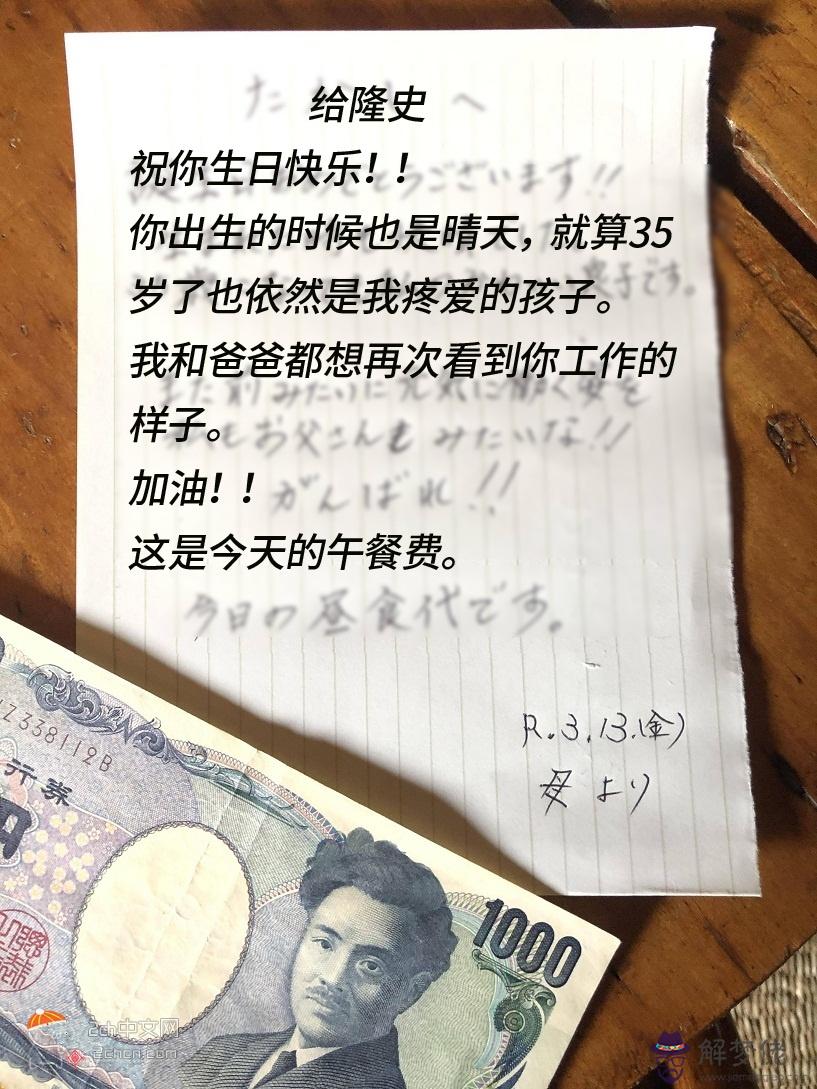 給隆史
祝你生日快乐！！
你出生的时候也是晴天，就算35
岁了也依然是我疼爱的孩子。
我和爸爸都想再次看到你工作的
样子。
加油！！
がんばれ!!
这是今天的午餐费。
今日の昼食代です。
R.3.13.(金)
母より
Z338112B
行券
円
1000
2ch中文网
2chcn.com
解梦佬